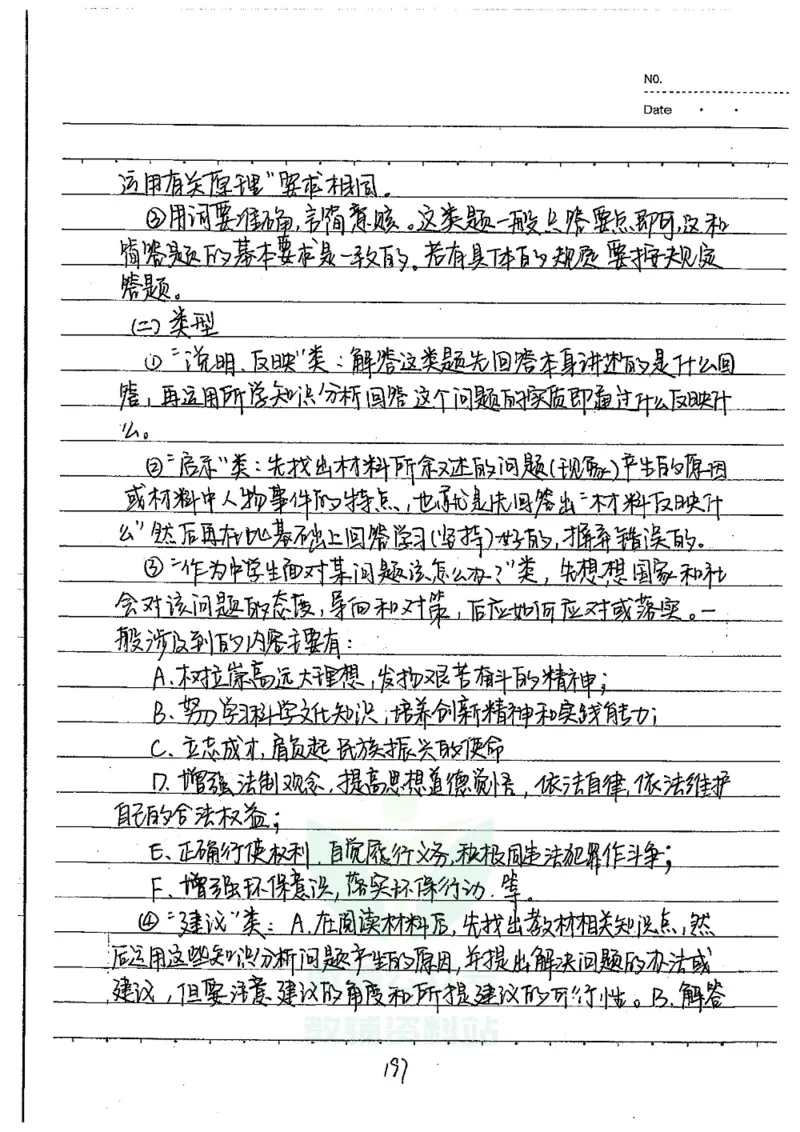 NO.
Date
运用有关原理"要求相同。
②用词要准确,言简意赅。这类题一般只答要点即可,这和
简答题的基本要求是一致的。若有具体的规定要按规定
答题。
(二)类型
①"说明、反映"类:解答这类题先回答本身讲述的是什么回
答,再运用所学知识分析回答这个问题的实质即通过什么反映什
么。
②"启示"类:先找出材料所叙述的问题(现象)产生的原因
或材料中人物事件的特点,也就是先回答出"材料反映什
么"然后再在此基础上回答学习(坚持)好的,摒弃错误的。
③"作为中学生面对某问题该怎么办?"类,先想想国家和社
会对该问题的态度,导向和对策,后应如何应对或落实。一
般涉及到的内容主要有:
A.树立崇高远大理想,发扬艰苦奋斗的精神;
B.努力学习科学文化知识,培养创新精神和实践能力;
C.立志成才,肩负起民族振兴的使命
D.增强法制观念,提高思想道德觉悟,依法自律,依法维护
自己的合法权益;
E、正确行使权利,自觉履行义务,积极同违法犯罪作斗争;
F、增强环保意识,落实环保行动.等。
④"建议"类:A.在阅读材料后,先找出教材相关知识点,然
后运用这些知识分析问题产生的原因,并提出解决问题的办法或
建议,但要注意建议的角度和所提建议的可行性。B.解答
教辅资料站
197